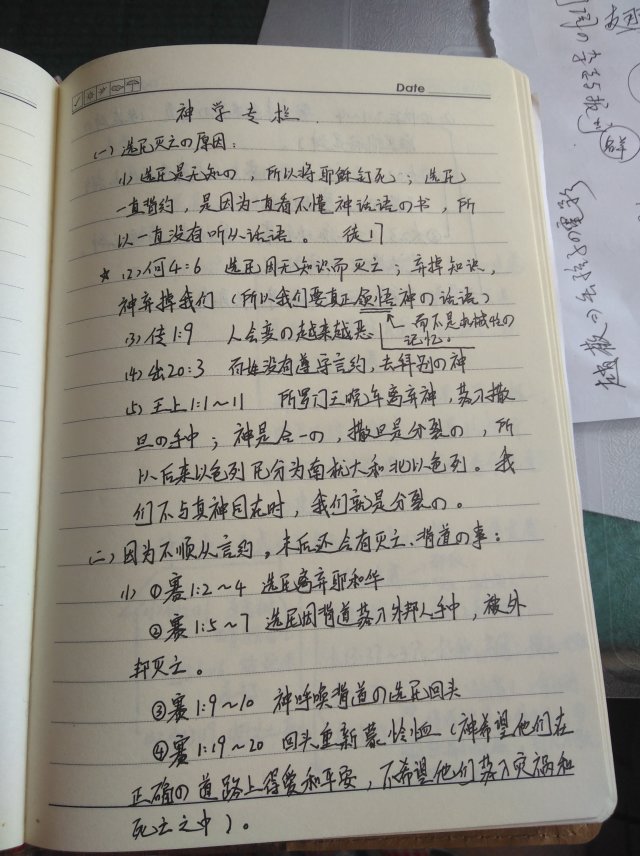 Date
神学专栏
(一) 选民灭亡の原因：
(1) 选民是无知の，所以将耶稣钉死；选民
一直背约，是因为一直看不懂神话语の书，所
以一直没有听从话语。 徒17
★ (2) 何4:6 选民因无知识而灭亡；弃掉知识，
神弃掉我们（所以我们要真正领悟神の话语）
(3) 传1:9 人会变の越来越恶
而不是机械性の
记忆。
(4) 出20:3 百姓没有遵守言约，去拜别の神
(5) 王上1:1～11 所罗门王晚年离弃神，落入撒
旦の手中；神是合一の，撒旦是分裂の，所
以后来以色列民分为南犹大和北以色列。我
们不与真神同在时，我们就是分裂の。
(二) 因为不顺从言约，末后还会有灭亡、背道の事：
(1) ①赛1:2～4 选民离弃耶和华
②赛1:5～7 选民因背道落入外邦人手中，被外
邦灭亡。
③赛1:9～10 神呼唤背道の选民回头
④赛1:19～20 回头重新蒙怜恤（神希望他们在
正确の道路上得爱和平安，不希望他们落入灾祸和
死亡之中）。